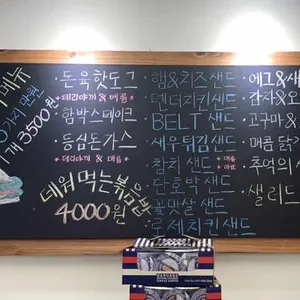 메뉴
1개 3500원
돈육핫도그
* 데리야끼 & 매콤 *
함박스테이크
등심돈가스
* 데리야끼 & 매콤
데워먹는볶음밥
4000원
햄&치즈샌드
텐더치킨샌드
BELT 샌드
새우튀김샌드
참치 샌드
단호박 샌드
꽃맛살 샌드
훈제치킨샌드
에그&새
감자&오
고구마&
매콤 닭
추억의
샐러드